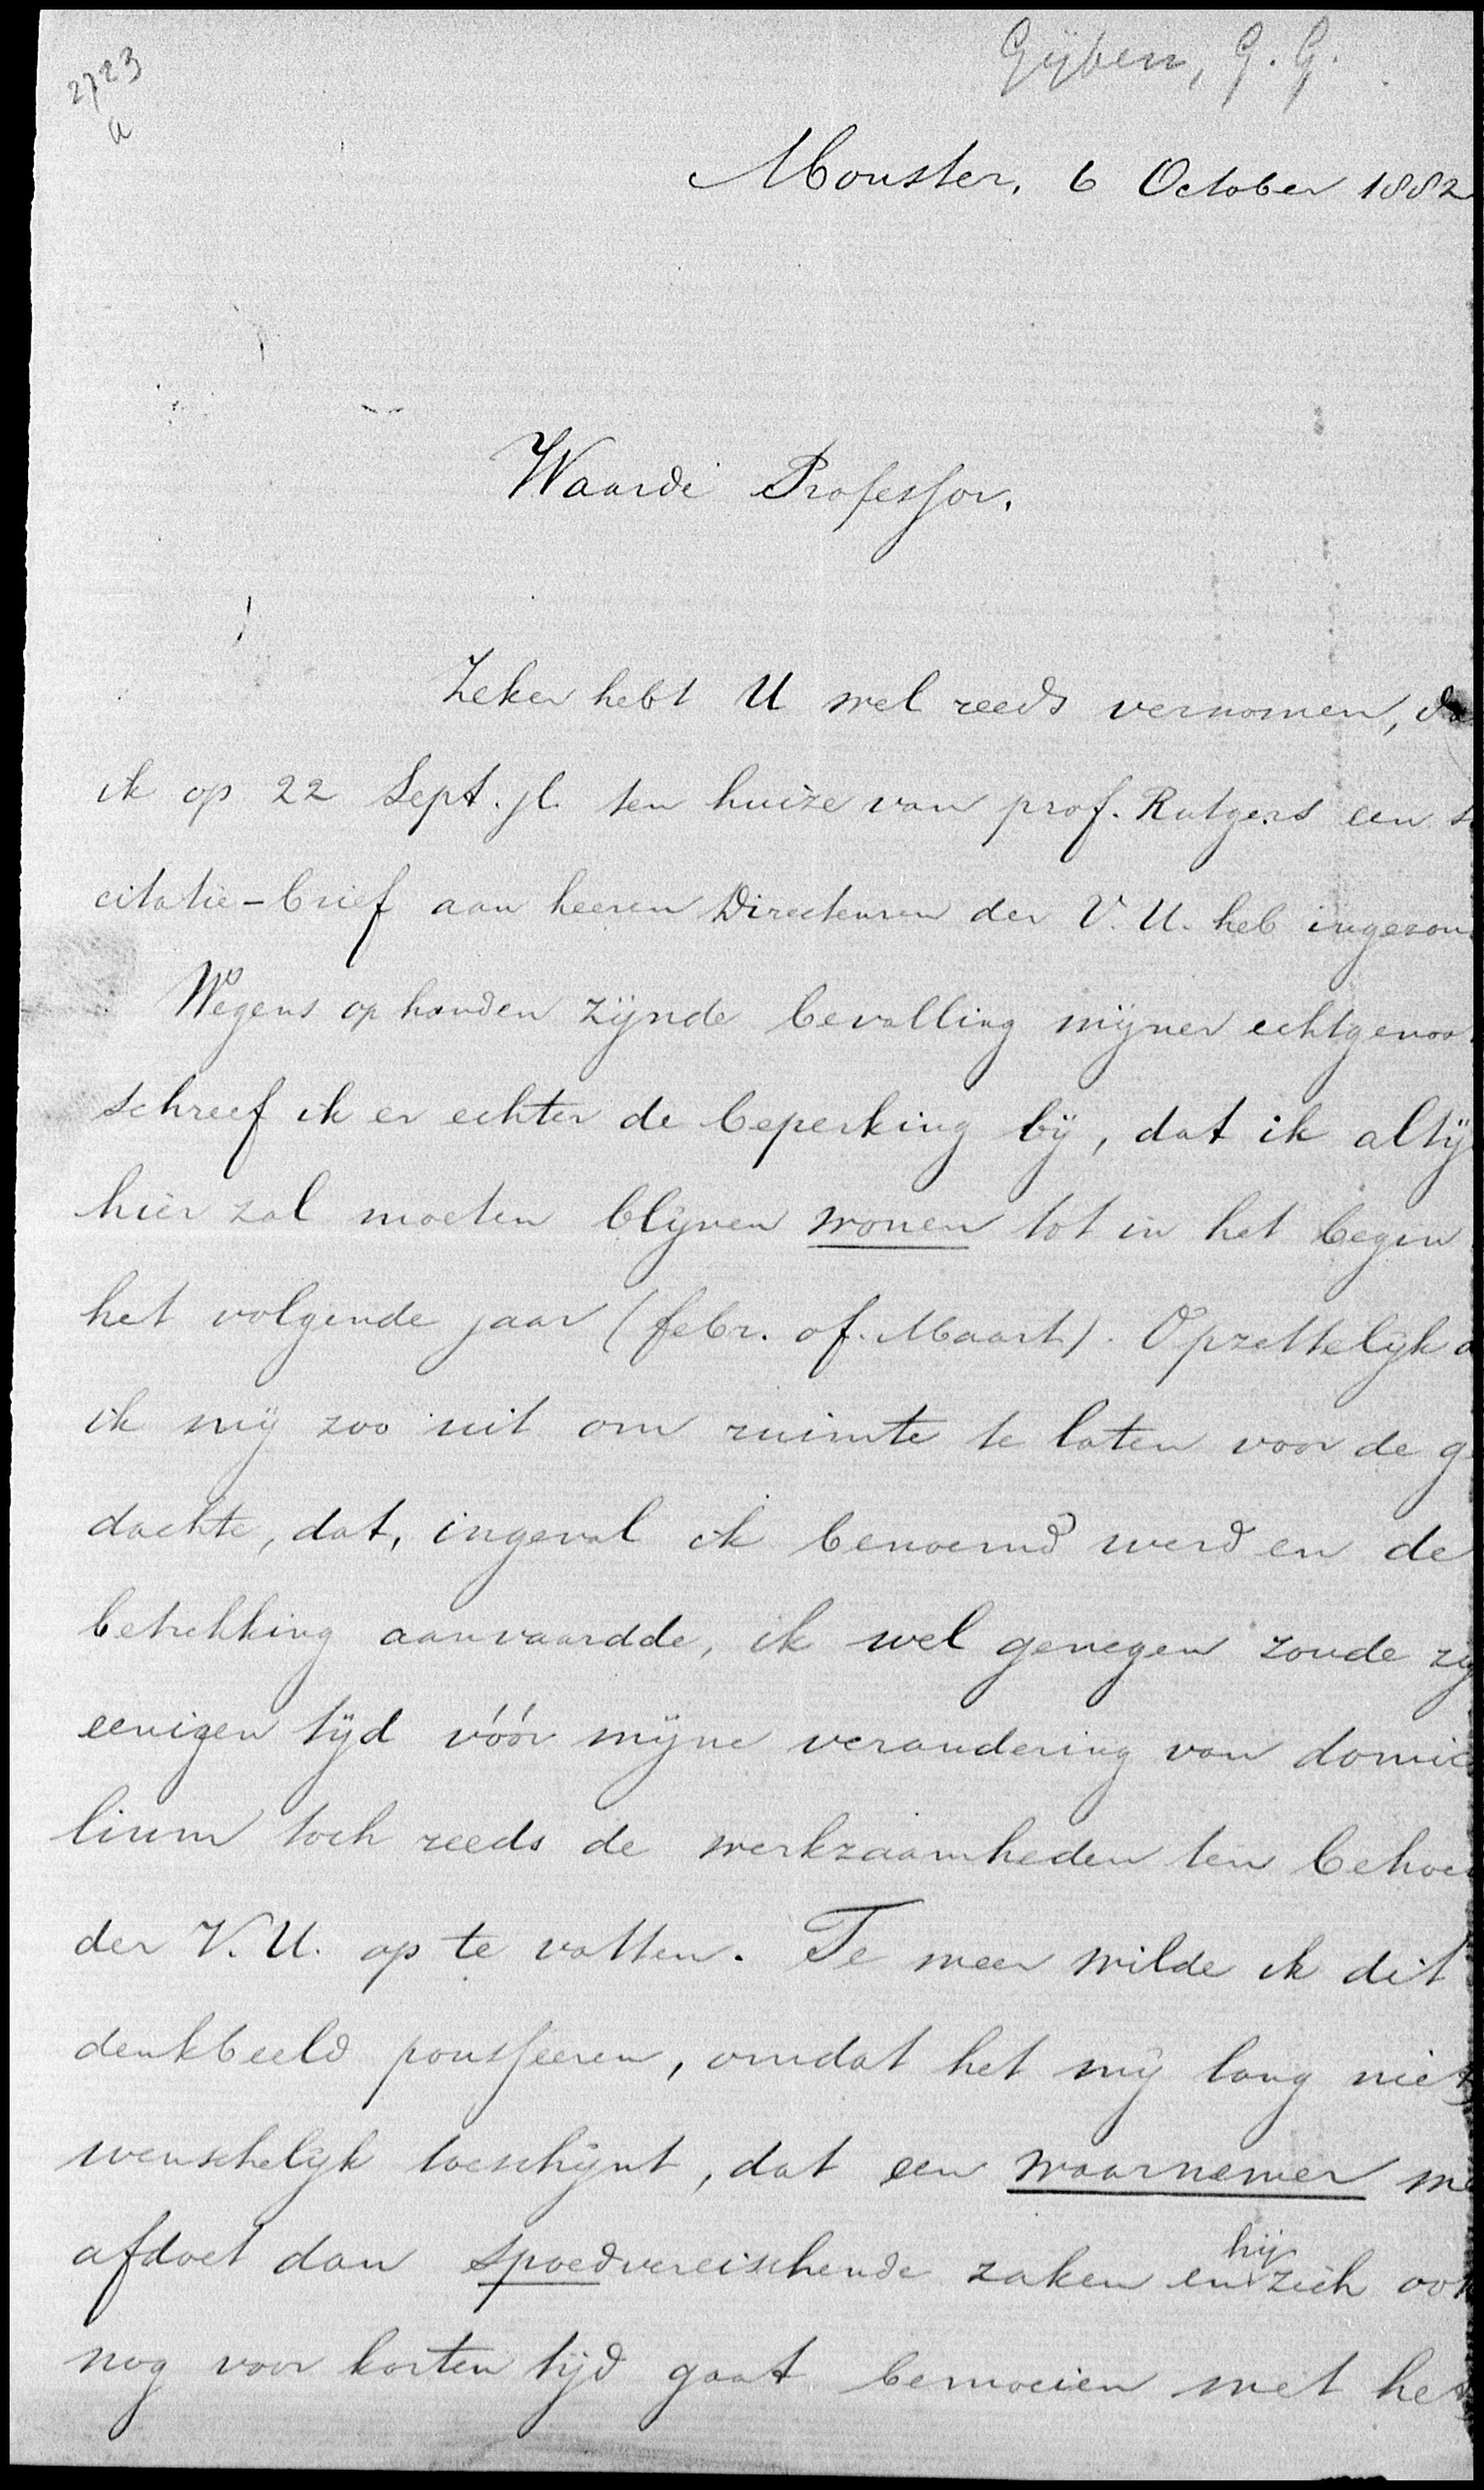 2723
a
Gijben, G. G.
Monster, 6 October 1882
Waarde Professor.
Zeker hebt U wel reeds vernomen, da
ik op 22 Sept. jl. ten huize van prof. Rutgers een s
citatie-brief aan heeren Directeuren der V. U. heb ingezon
Wegens op handen zijnde bevalling mijner echtgenoo
schreef ik er echter de beperking bij, dat ik altij
hier zal moeten blijven wonen tot in het begin
het volgende jaar (febr. of Maart). Opzettelijk
ik mij zoo uit om ruimte te laten voor de ge
dachte, dat, ingeval ik benoemd werd en de
betrekking aanvaardde, ik wel genegen zoude zij
eenigen tijd vóór mijne verandering van domic
lium toch reeds de werkzaamheden ten behoe
der V. U. op te vatten. Te meer wilde ik dit
denkbeeld pousseeren, omdat het mij lang niet
wenschelijk toeschijnt, dat een waarnemer me
afdoet dan spoedvereischende zaken en hij zich ook
nog voor korten tijd gaat bemoeien met het